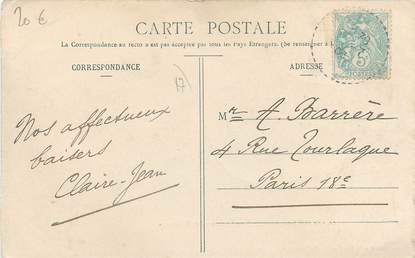 20 €
CARTE POSTALE
La Correspondance au recto n'est pas acceptée par tous les Pays Etrangers. (Se renseigner à
CORRESPONDANCE
ADRESSE
POSTES
5
Nos affectueux
baisers
Claire-Jean
Mr A. Barrère
4 Rue Tourlaque
Paris 18e